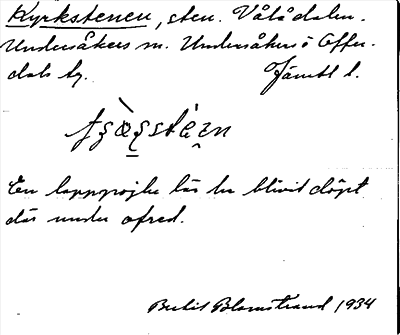 Kyrkstenen, sten. Vålådalen.
Undersåkers sn. Undersåkers o Offer-
dals tg. Jämtl l.
En lapppojke lär ha blivit döpt
där under ofred.
Bertil Blomstrand 1934